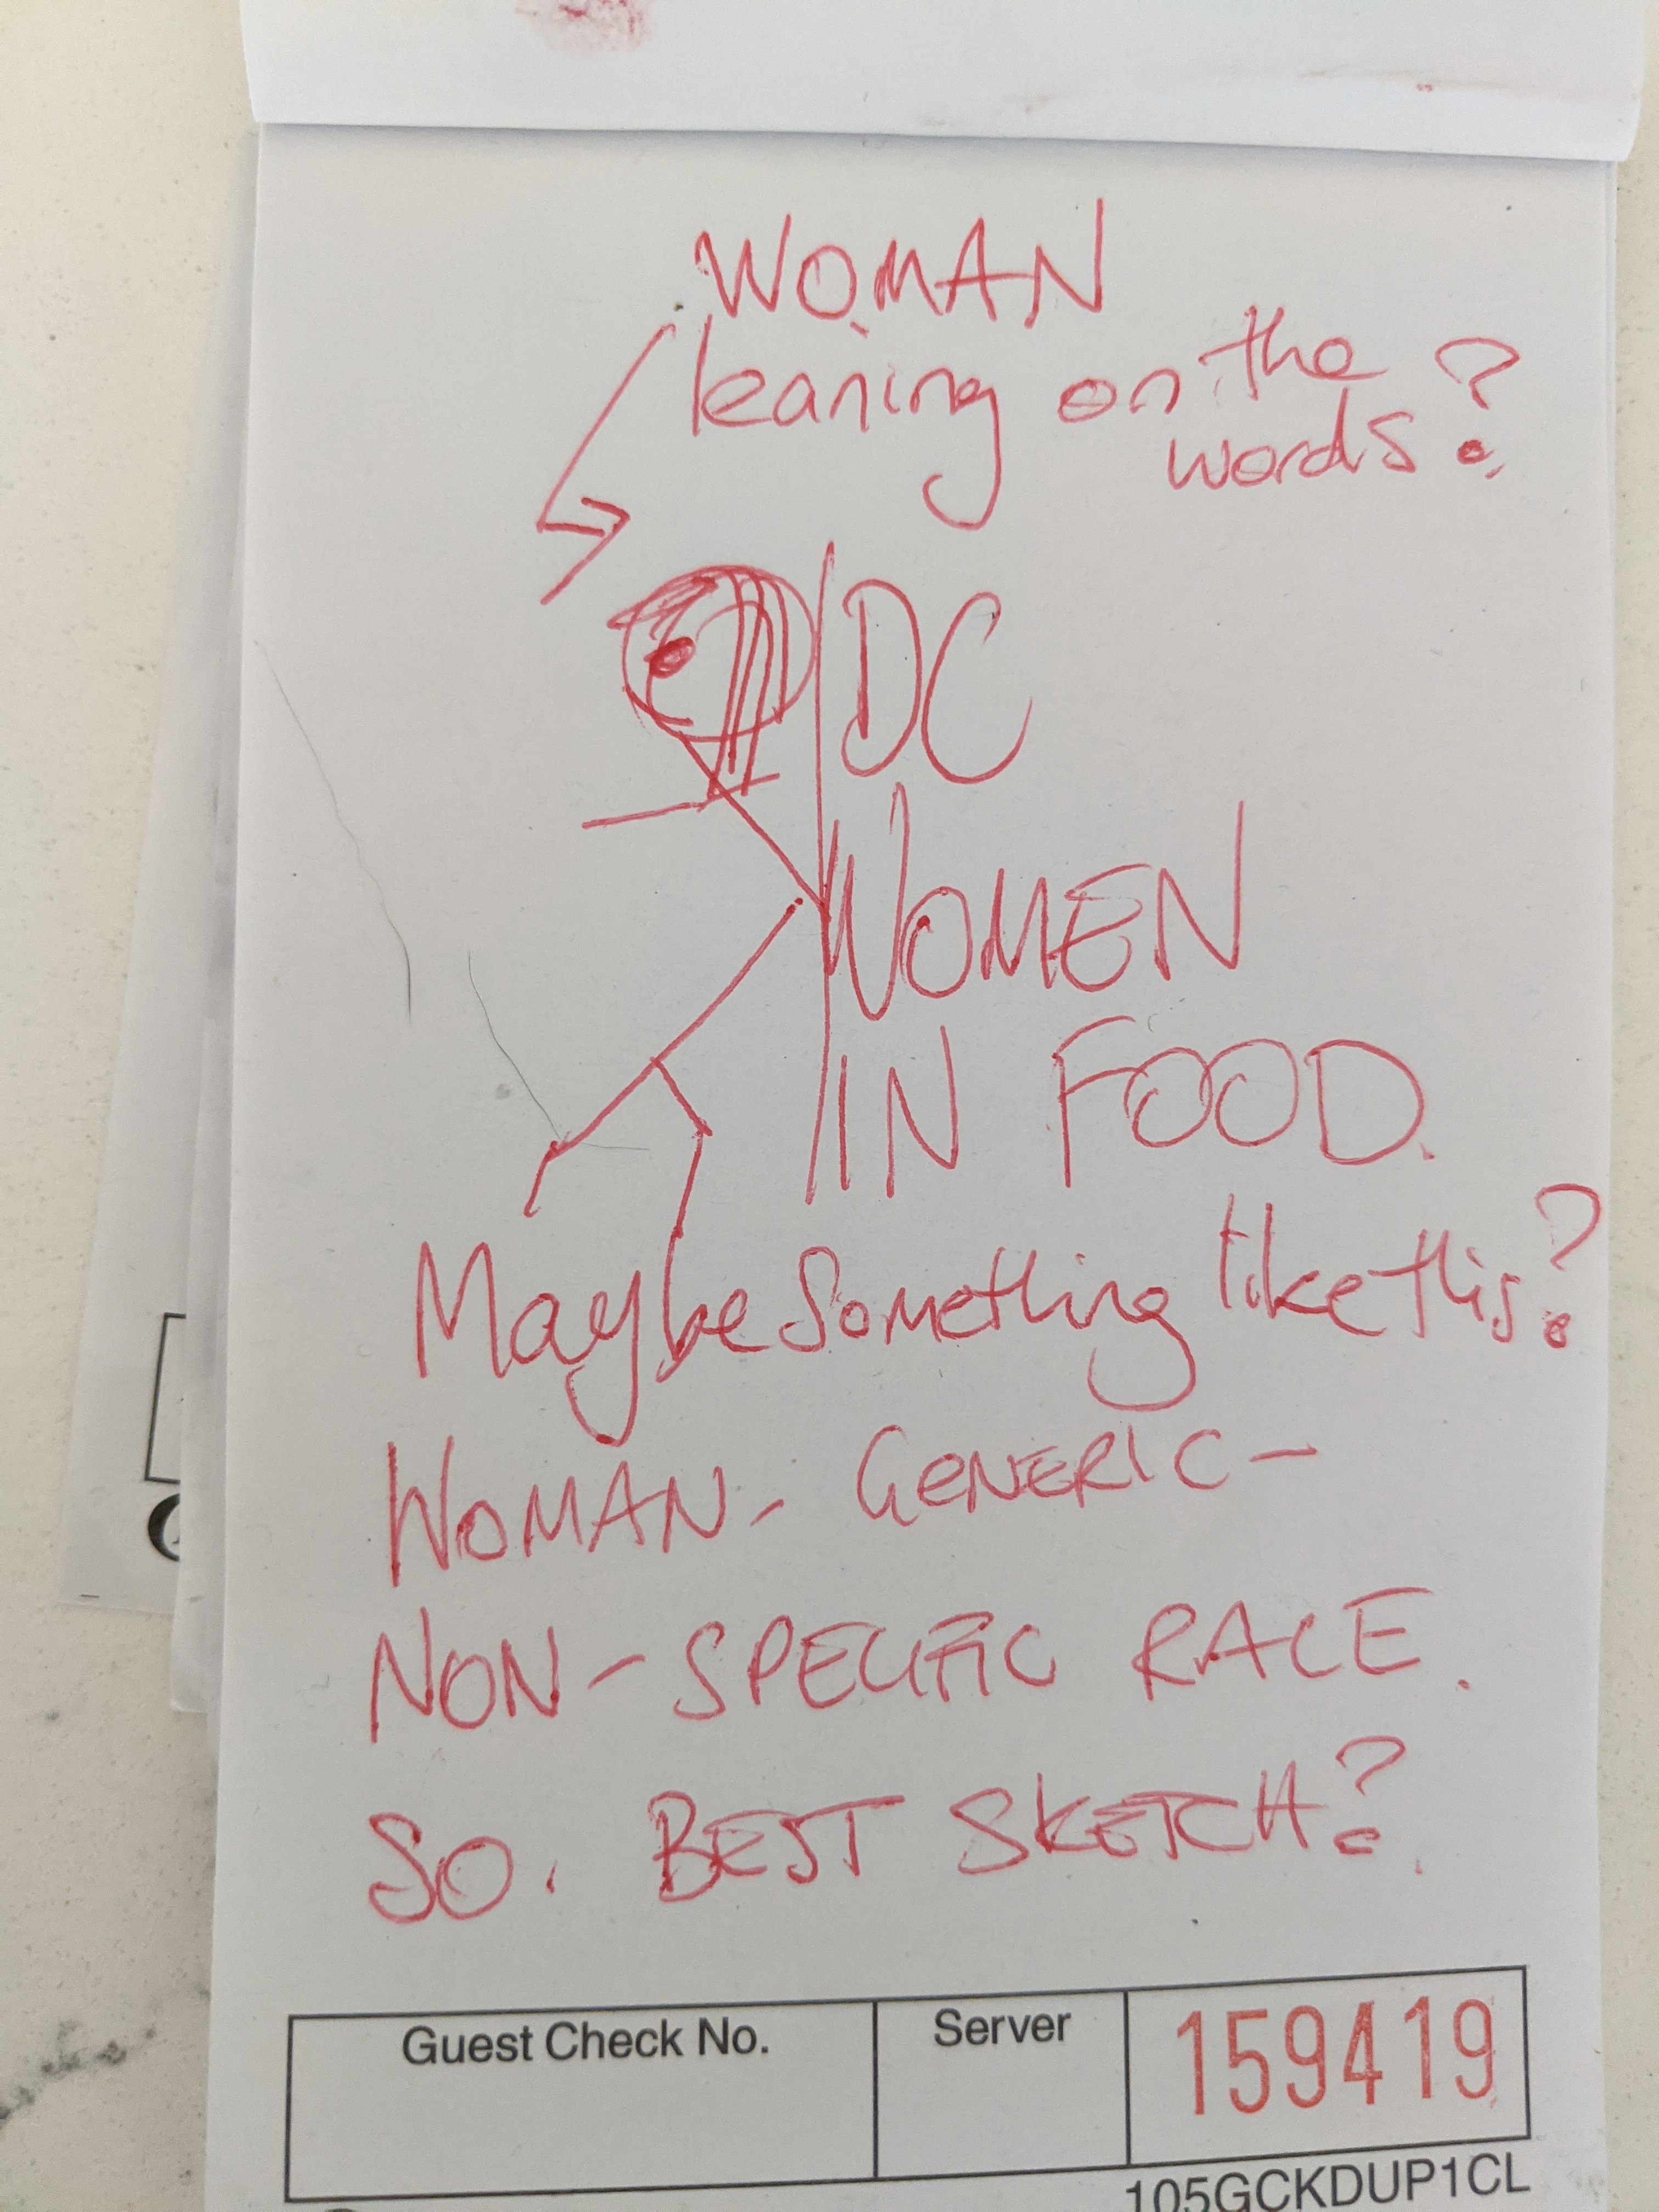 WOMAN
leaning on the
words?
DC
WOMEN
IN FOOD.
Maybe something like this?
WOMAN - GENERIC -
NON-SPECIFIC RACE.
SO. BEST SKETCH?
Guest Check No.
Server
159419
105GCKDUP1CL